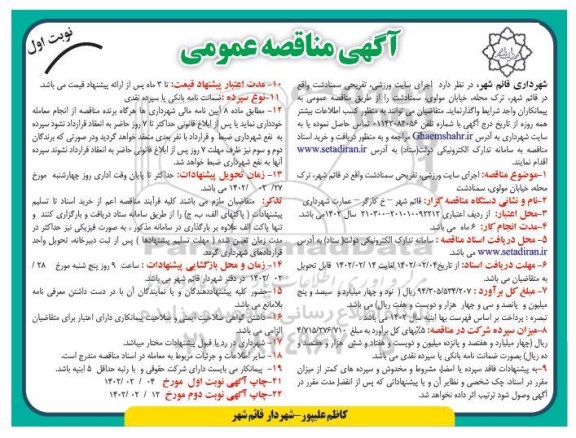 نوبت اول
آگهی مناقصه عمومی
شهرداری قائم شهر، در نظر دارد اجرای سایت ورزشی، تفریحی سمنادشت واقع
در قائم شهر، ترک محله، خیابان مولوی، سمنادشت را از طریق مناقصه عمومی به
پیمانکاران واجد شرایط واگذار نماید. متقاضیان می توانند به منظور کسب اطلاعات بیشتر
همه روزه از تاریخ درج آگهی با شماره تلفن ۰۱۱۴۲۰۸۴۰۵۶ تماس حاصل نموده یا به
سایت شهرداری به آدرس Ghaemshahr.ir مراجعه و به منظور دریافت و خرید اسناد
مناقصه به سامانه تدارک الکترونیکی دولت(ستاد) به آدرس www.setadiran.ir
اقدام نمایند.
۱-موضوع مناقصه: اجرای سایت ورزشی، تفریحی سمنادشت واقع در قائم شهر، ترک
محله، خیابان مولوی، سمنادشت
۲-نام و نشانی دستگاه مناقصه گزار: قائم شهر – خ کارگر – عمارت شهرداری
۳-محل اعتبار: از ردیف اعتباری ۲۱۰۳۰۰-۲۰۱۰۱۰۰۹۲۲۱۲ سال ۱۴۰۲می باشد.
۴-مدت انجام کار: ۶ ماه می باشد.
۵- محل دریافت اسناد مناقصه : سامانه تدارک الکترونیکی دولت(ستاد) به آدرس
www.setadiran.ir می باشد.
۶- مهلت دریافت اسناد: از تاریخ۱۴۰۲/۰۲/۰۴ لغایت ۱۴۰۲/۰۲/۱۴ قابل تحویل
به متقاضیان می باشد.
۷- مبلغ کل برآورد : ۹۴/۳۰۵/۵۳۴/۲۰۷ ریال ( نود و چهار میلیارد و سیصد و پنج
میلیون و پانصد و سی و چهار هزار و دویست و هفت ریال) می باشد.
تبصره : پرداخت بر اساس فهرست بها ابنیه سال ۱۴۰۲ می باشد.
۸-میزان سپرده شرکت در مناقصه: ۵٪بهای کل برآورد به مبلغ ۴/۷۱۵/۲۷۶/۷۱۰
ریال (چهار میلیارد و هفتصد و پانزده میلیون و دویست و هفتاد و شش هزار و هفتصد و
ده ریال) بصورت ضمانت نامه بانکی یا سپرده نقدی می باشد.
۹-به پیشنهادات فاقد سپرده یا امضا، مشروط و مخدوش و سپرده های کمتر از میزان
مقرر در اسناد، چک شخصی و نظایر آن و یا پیشنهاداتی که پس از انقضا مدت مقرر در
آگهی وصول شود ترتیب اثر داده نخواهد شد.
۱۰- مدت اعتبار پیشنهاد قیمت: تا ۳ ماه پس از ارائه پیشنهاد قیمت می باشد.
۱۱-نوع سپرده :ضمانت نامه بانکی یا سپرده نقدی
۱۲- مطابق ماده ۸ آیین نامه مالی شهرداری ها هرگاه برنده مناقصه از انجام معامله
خودداری نماید یا پس از ابلاغ قانونی حداکثر تا ۷ روز حاضر به انعقاد قرارداد نشود سپرده
به نفع شهرداری ضبط و قرارداد با نفر بعدی منعقد خواهد گردید ودر صورتی که برندگان
دوم و سوم نیز ظرف مهلت ۷ روز پس از ابلاغ قانونی حاضر به انعقاد قرارداد نشوند سپرده
آنها به نفع شهرداری ضبط خواهد شد.
۱۳- زمان تحویل پیشنهادات: حداکثر تا پایان وقت اداری روز چهارشنبه مورخ
۲۷/ ۰۲ /۱۴۰۲ می باشد.
تذکر: متقاضیان ملزم می باشند کلیه فرآیند مناقصه اعم از خرید اسناد تا تسلیم
پیشنهادات ( پاکتهای الف، ب، ج) را از طریق سامانه ستاد دریافت و بارگزاری کنند و
تنها پاکت الف علاوه بر بارگذاری در سامانه مذکور ، به صورت فیزیکی نیز حداکثر در
مدت زمان تعیین شده ( مهلت تسلیم پیشنهادها ) پس از ثبت دبیرخانه، تحویل واحد
قراردادهای شهرداری گردد.
۱۴- زمان و محل بازگشایی پیشنهادات : ساعت ۹ روز پنج شنبه مورخ ۲۸ /
۰۲ /۱۴۰۲ در دفتر شهردار قائم شهر می باشد.
۱۵-حضور کلیه پیشنهاددهندگان و یا نمایندگان آن با در دست داشتن معرفی نامه
بلامانع می باشد.
۱۶- داشتن گواهی صلاحیت ایمنی و صلاحیت پیمانکاری دارای اعتبار برای متقاضیان
الزامی می باشد.
۱۷- شهرداری در رد یا قبول پیشنهادات مختار میباشد.
۱۸- سایر اطلاعات و جزئیات مربوط به معامله در اسناد مناقصه مندرج است.
۱۹- پیمانکار می بایست دارای شرکت حقوقی و با رتبه حداقل ۵ ابنیه باشد.
۲۱-چاپ آگهی نوبت اول مورخ ۰۴ / ۰۲ /۱۴۰۲
۲۲-چاپ آگهی نوبت دوم مورخ ۱۲ / ۰۲ /۱۴۰۲
کاظم علیپور-شهردار قائم شهر